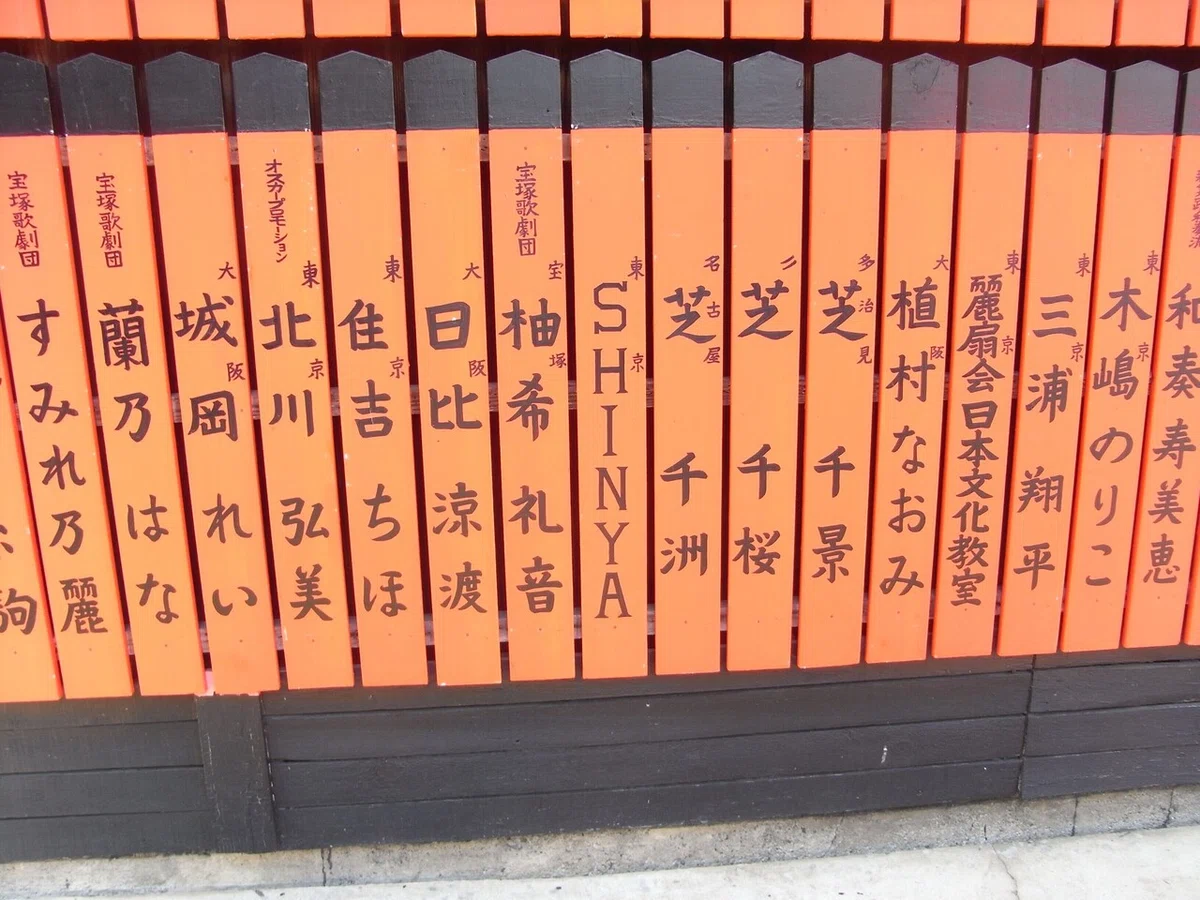 和奏寿美恵
東京
木嶋のりこ
東京
三浦 翔平
東京
麗扇会日本文化教室
大阪
植村なおみ
多治見
芝 千景
〃
芝 千桜
名古屋
芝 千洲
東京
SHINYA
宝塚歌劇団
宝塚
柚希礼音
大阪
日比 涼渡
東京
住吉 ちほ
オスカープロモーション
東京
北川 弘美
大阪
城岡 れい
宝塚歌劇団
蘭乃 はな
宝塚歌劇団
すみれ乃 麗
駒